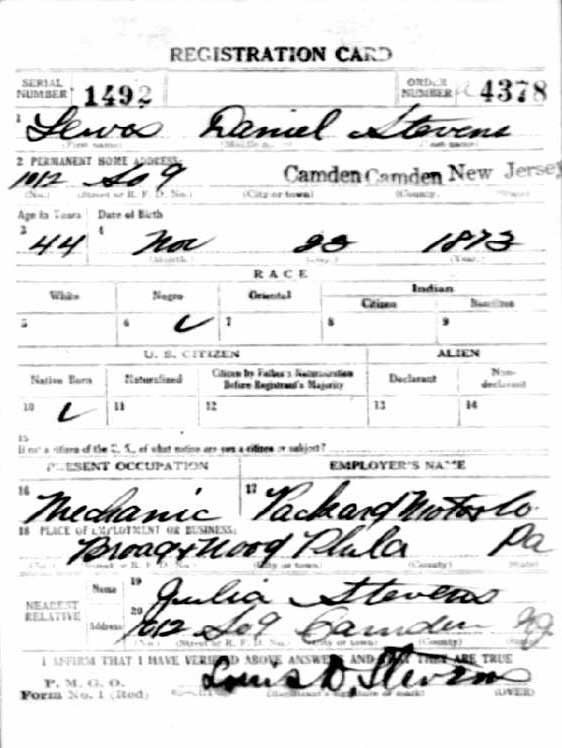 REGISTRATION CARD
SERIAL NUMBER 1492 ORDER NUMBER 4378
1 Lewos Daniel Stevens
(First name) (Last name)
2 PERMANENT HOME ADDRESS:
1012 So 9 Camden Camden New Jersey
(No.) (Street or R. F. D. No.) (City or town) (County) (State)
Age in Years Date of Birth
3 44 4 Nov 23 1873
(Month) (Day) (Year)
RACE
White Negro Oriental Indian
Citizen
5 6 ✓ 7 8 9
U. S. CITIZEN ALIEN
Native Born Naturalized Citizen by Father's Naturalization Before Registrant's Majority Declarant Non-declarant
10 ✓ 11 12 13 14
15
If not a citizen of the U. S., of what nation are you a citizen or subject?
PRESENT OCCUPATION EMPLOYER'S NAME
16 Mechanic 17 Packard Motor Co
18 PLACE OF EMPLOYMENT OR BUSINESS:
Broad & Wood Phila Pa
(No.) (Street or R. F. D. No.) (City or town) (County) (State)
NEAREST RELATIVE Name 19 Julia Stevens
Address 20 1012 So 9 Camden NJ
(No.) (Street or R. F. D. No.) (City or town) (County) (State)
I AFFIRM THAT I HAVE VERIFIED ABOVE ANSWERS AND THAT THEY ARE TRUE
P. M. G. O.
Form No. 1 (Red) Louis D. Stevens
(Registrant's signature or mark) (OVER)